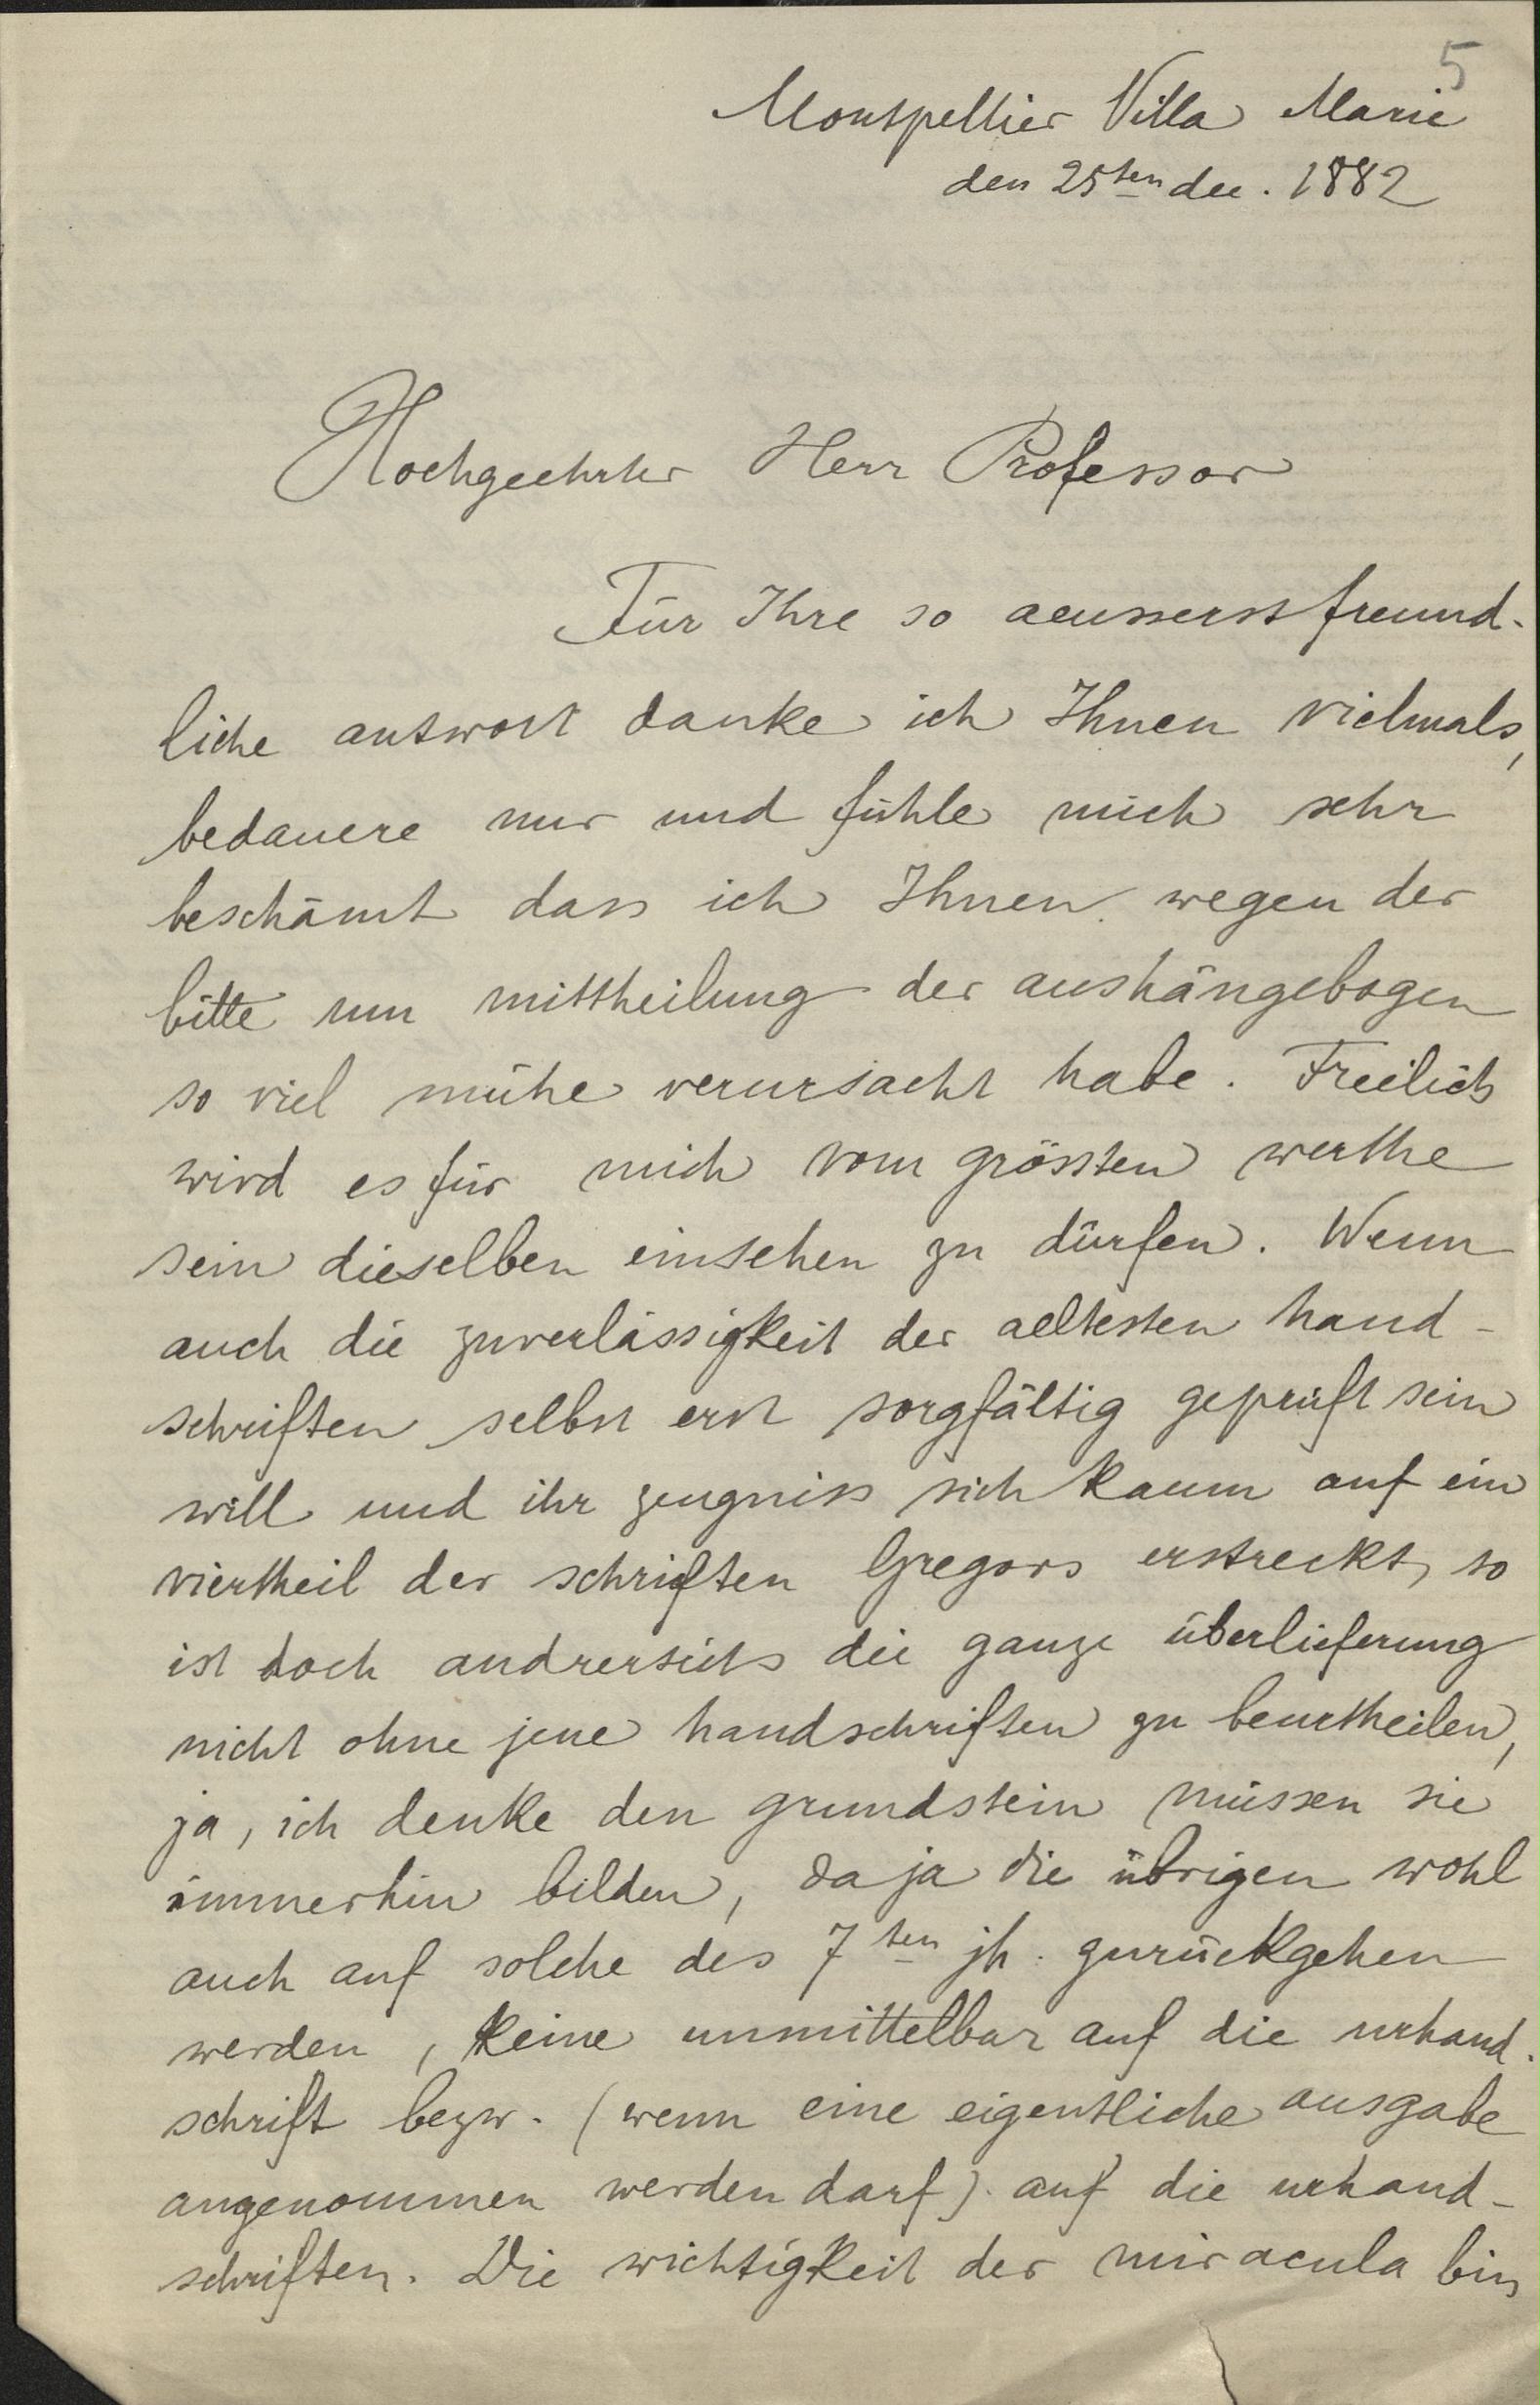 5
Montpellier Villa Marie
den 25ten dec. 1882
Hochgeehrter Herr Professor
Für Ihre so aeusserst freund-
liche antwort danke ich Ihnen vielmals,
bedauere nur und fühle mich sehr
beschämt dass ich Ihnen wegen der
bitte um mittheilung der aushängebogen
so viel mühe verursacht habe. Freilich
wird es für mich vom grössten werthe
sein dieselben einsehen zu dürfen. Wenn
auch die zuverlässigkeit der aeltesten hand-
schriften selbst erst sorgfältig geprüft sein
will und ihr zeugniss sich kaum auf ein
viertheil der schriften Gregors erstreckt, so
ist doch andrerseits die ganze überlieferung
nicht ohne jene handschriften zu beurtheilen,
ja, ich denke den grundstein müssen sie
immerhin bilden, da ja die übrigen wohl
auch auf solche des 7ten jh. zurückgehen
werden, keine unmittelbar auf die urhand-
schrift bezw. (wenn eine eigentliche ausgabe
angenommen werden darf) auf die urhand-
schriften. Die wichtigkeit der miracula bin